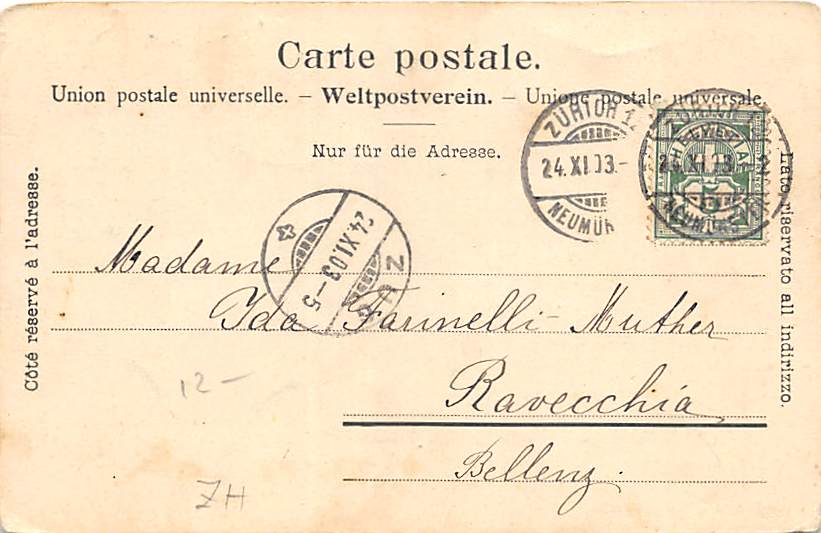 Carte postale.
Union postale universelle. – Weltpostverein. – Unione postale universale.
Nur für die Adresse.
Côté réservé à l'adresse.
Lato riservato all indirizzo.
ZÜRICH 1
24.XI.03.-
NEUMÜN
HELVETIA
24.XI.03.-5
ZUG
Madame
Ida Farinelli-Muther
Ravecchia
Bellenz.
12 –
ZH